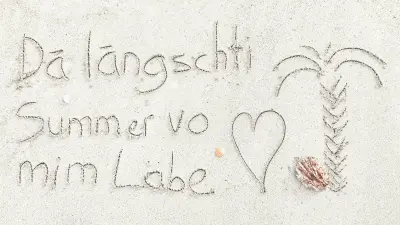 Dä längschti
Summer vo
mim Läbe